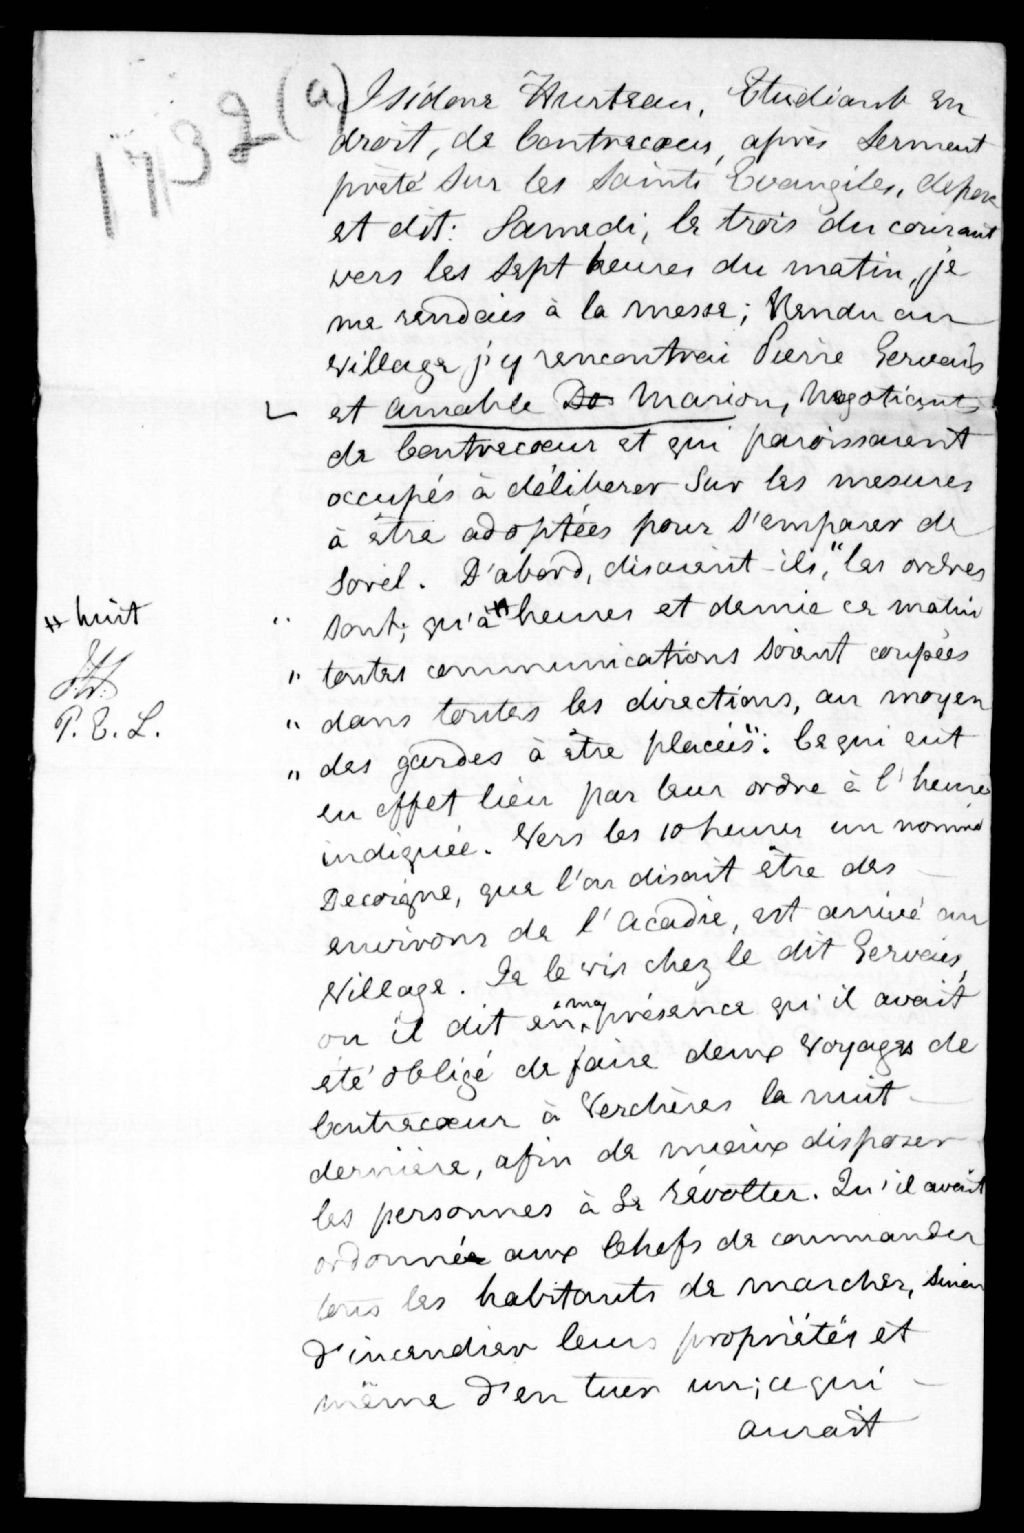 1732(a)
Isidore Hurteau, Etudiant en
droit, de Contrecoeur, après serment
prêté sur les Saints Evangiles, depose
et dit: Samedi, le trois du courant
vers les sept heures du matin, je
me rendais à la messe; Rendu au
village j'y rencontrai Pierre Gervais
et amable Do Marion, Négotiants
de Contrecoeur et qui paroissaient
occupés à déliberer sur les mesures
à être adoptées pour s'emparer de
Sorel. D'abord, disaient-ils, "les ordres
" sont; qu'à # heures et demie ce matin
# huit
" toutes communications soient coupées
J.H.
" dans toutes les directions, au moyen
P. E. L.
" des gardes à être placés": Ce qui eut
en effet lieu par leur ordre à l'heure
indiquée. Vers les 10 heures un nommé
Decoigne, que l'on disait être des
environs de l'Acadie, est arrivé au
village. Je le vis chez le dit Gervais,
ou il dit en ma présence qu'il avait
été obligé de faire deux voyages de
Contrecoeur à Verchères la nuit
dernière, afin de mieux disposer
les personnes à se révolter. Qu'il avait
ordonné aux Chefs de commander
tous les habitants de marcher, sinon
d'incendier leurs propriétés et
même d'en tuer un; ce qui
aurait